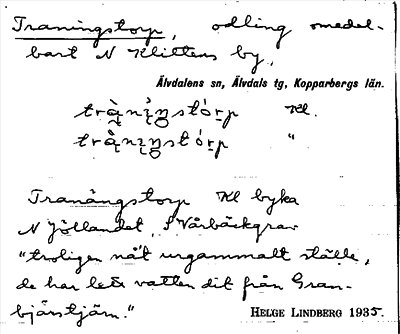 Traningstorp, odling omedel-
bart N Klittens by,
Älvdalens sn, Älvdals tg, Kopparbergs län.
trànįŋstórp Kl.
trànįŋstórp "
Tranängstorp Kl byka
N Jöllandet, S Vårbäckgrav
"troligen nåt urgammalt ställe,
de har lett vatten dit från Gran-
bjärstjärn."
HELGE LINDBERG 1935.